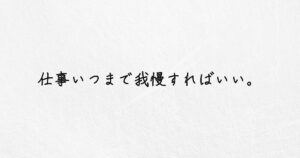 仕事いつまで我慢すればいい。